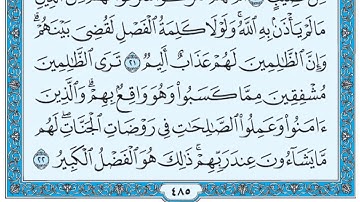 مَا لَمْ يَأْذَنْ بِهِ ٱللَّهُ ۚ وَلَوْلَا كَلِمَةُ ٱلْفَصْلِ لَقُضِىَ بَيْنَهُمْ ۗ
وَإِنَّ ٱلظَّٰلِمِينَ لَهُمْ عَذَابٌ أَلِيمٌ ٢١ تَرَى ٱلظَّٰلِمِينَ
مُشْفِقِينَ مِمَّا كَسَبُوا۟ وَهُوَ وَاقِعٌۢ بِهِمْ ۗ وَٱلَّذِينَ
ءَامَنُوا۟ وَعَمِلُوا۟ ٱلصَّٰلِحَٰتِ فِى رَوْضَاتِ ٱلْجَنَّاتِ ۖ لَهُم
مَّا يَشَآءُونَ عِندَ رَبِّهِمْ ۚ ذَٰلِكَ هُوَ ٱلْفَضْلُ ٱلْكَبِيرُ ٢٢
٤٨٥